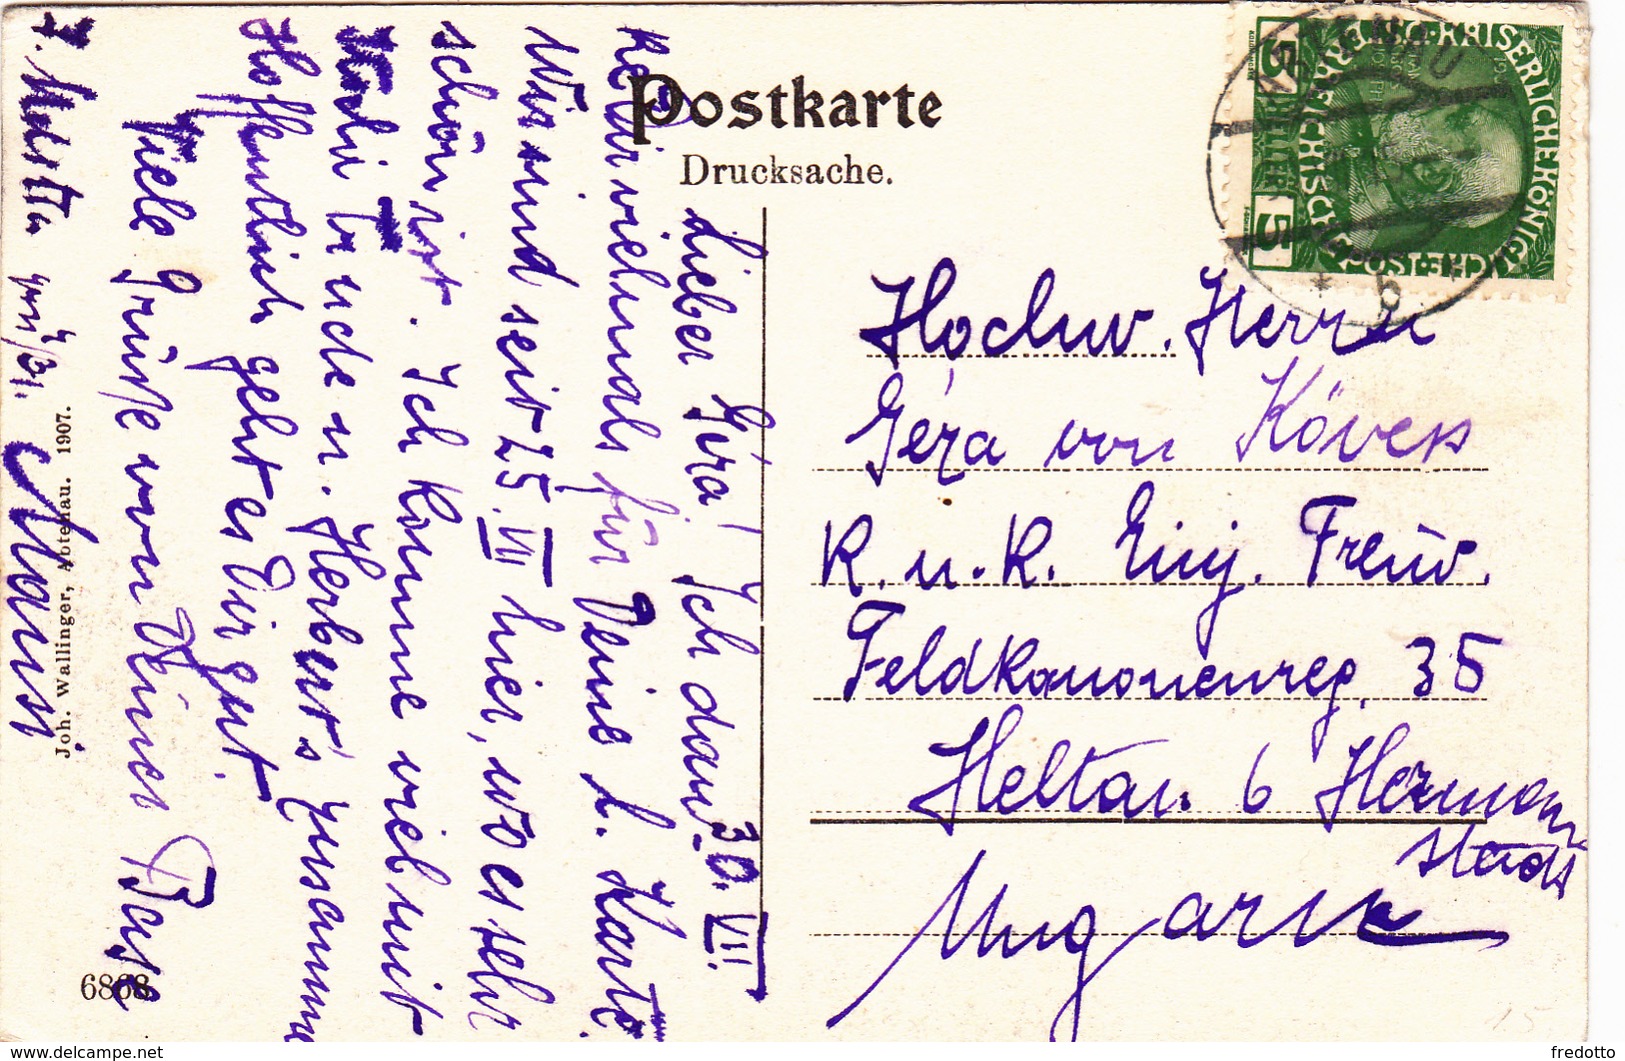 Postkarte
Drucksache.
30. VIII.
Lieber Géza! Ich danke
Dir vielmals für Deine l. Karte.
Wir sind seit 25. VII hier, wo es sehr
schön ist. Ich komme viel mit
Trude u. Herbert's zusammen
Hoffentlich geht es Dir gut.
Viele Grüße von Deiner Base
Mausi
Hochw. Herrn
Géza von Kövess
K. u. K. Einj. Freiw.
Feldkanonenreg. 35
Heltau b Hermann
stadt
Ungarn
Joh. Wallinger, Abtenau. 1907.
6868
KAISERLICHE KÖNIGLICHE
ÖSTERREICHISCHE POST
5 HELLER 5
15
fredotto
www.delcampe.net